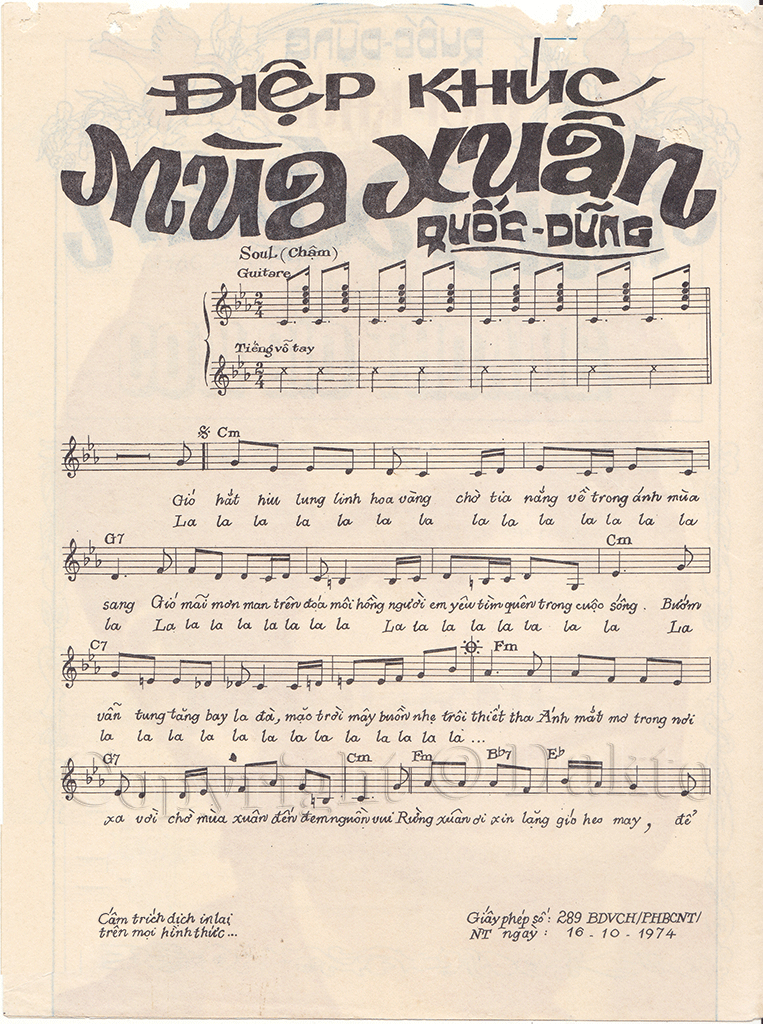 ĐIỆP KHÚC
MÙA XUÂN
QUỐC-DŨNG
Soul (Chậm)
Guitare
Tiếng vỗ tay
Cm
Gió hắt hiu lung linh hoa vàng chở tia nắng về trong ánh mùa
La la la la la la la la la la la la la la
G7 Cm
sang Gió mãi mơn man trên đóa môi hồng người em yêu tìm quên trong cuộc sống. Bướm
la La la la la la la la La la la la la la la la La
C7 Fm
vẫn tung tăng bay la đà, mặc trời mây buồn nhẹ trôi thiết tha Ánh mắt mơ trong nơi
la la la la la la la la la la la la la ...
G7 Cm Fm Bb7 Eb
xa vời chờ mùa xuân đến đem nguồn vui Rừng xuân ơi xin lặng gió heo may, để
Copyright © Dakto
Cấm trích dịch in lại
trên mọi hình thức...
Giấy phép số: 289 BDVCH/PHBCNT/
NT ngày: 16-10-1974